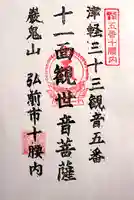 五番十腰内
津軽三十三観音五番
十一面観世音菩薩
巌鬼山 弘前市十腰内